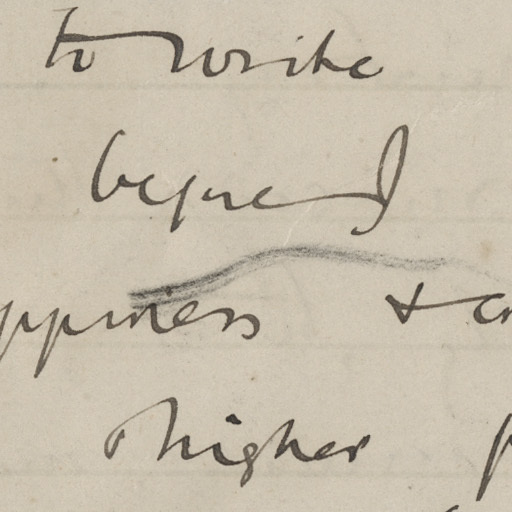 to write
before I
ppiness &
higher